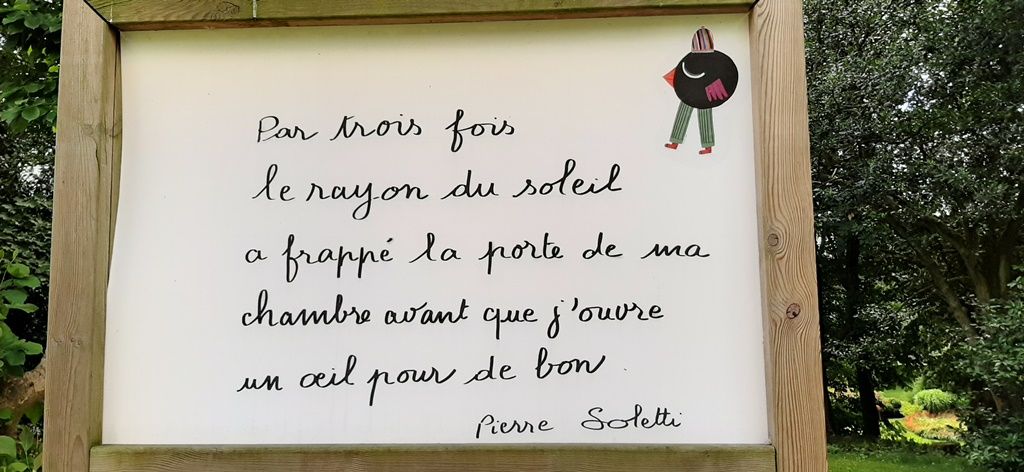 Par trois fois
le rayon du soleil
a frappé la porte de ma
chambre avant que j'ouvre
un œil pour de bon
Pierre Soletti